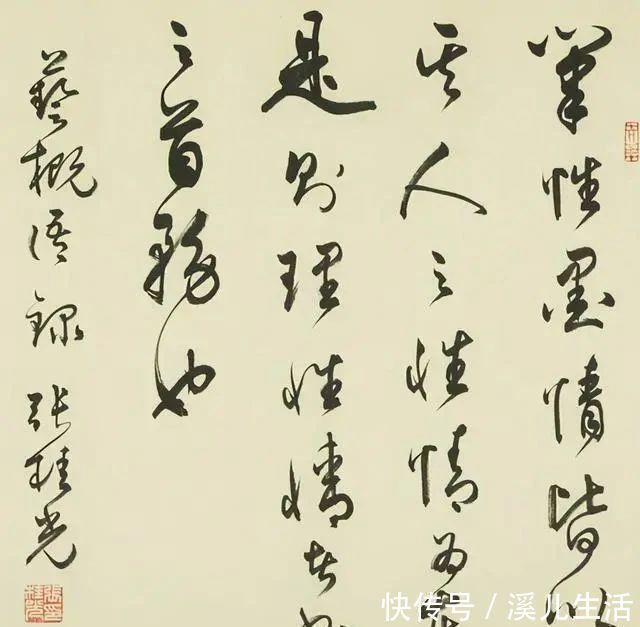 筆性墨情皆以
其人之性情為
是則理性情者
之首務也
藝概語錄 張桂光
快传号 / 溪儿生活